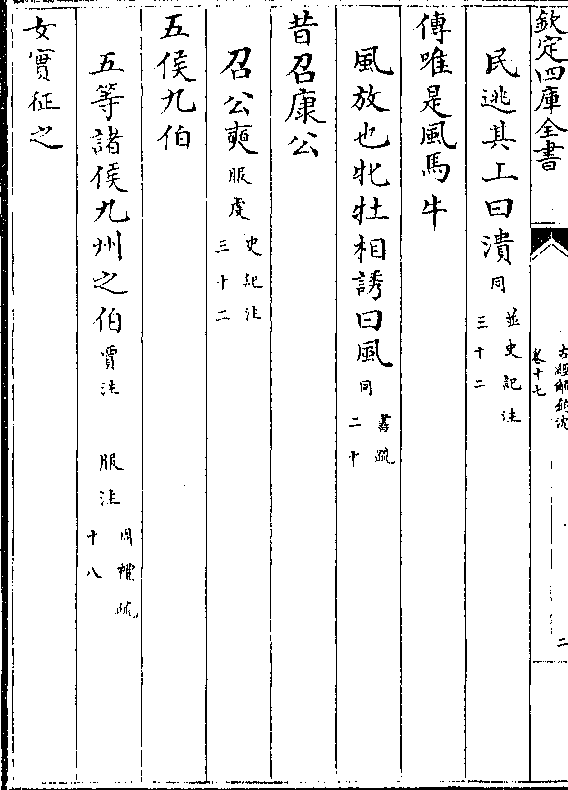 欽定四庫全書
古經解鉤沈
卷十七
二
民逃其上曰潰同並史記注三十二
傳唯是風馬牛
風放也牝牡相誘曰風同書疏二十
昔召康公
召公奭服虔史記注三十二
五侯九伯
五等諸侯九州之伯賈注 服注周禮疏十八
女實征之